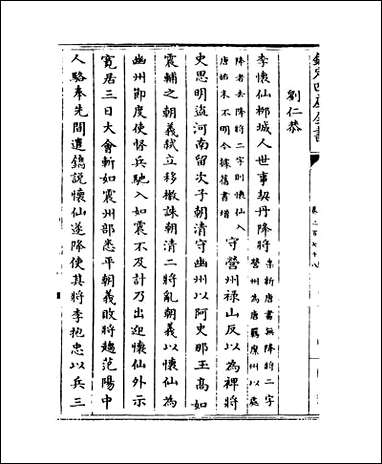 欽定四庫全書
卷二百七十八
劉仁恭
李懷仙柳城人世事契丹降將
案新唐書無降將二字
營州為唐羈縻州以處
降者去降將二字則懷仙入
唐始末不明今據舊書增
守營州祿山反以為裨將
史思明盜河南留次子朝清守幽州以阿史那玉高如
震輔之朝義弒立移檄誅朝清二將亂朝義以懷仙為
幽州節度使督兵馳入如震不及計乃出迎懷仙外示
寬居三日大會斬如震州部悉平朝義敗將趨范陽中
人駱奉先間遣鐫說懷仙遂降使其將李抱忠以兵三